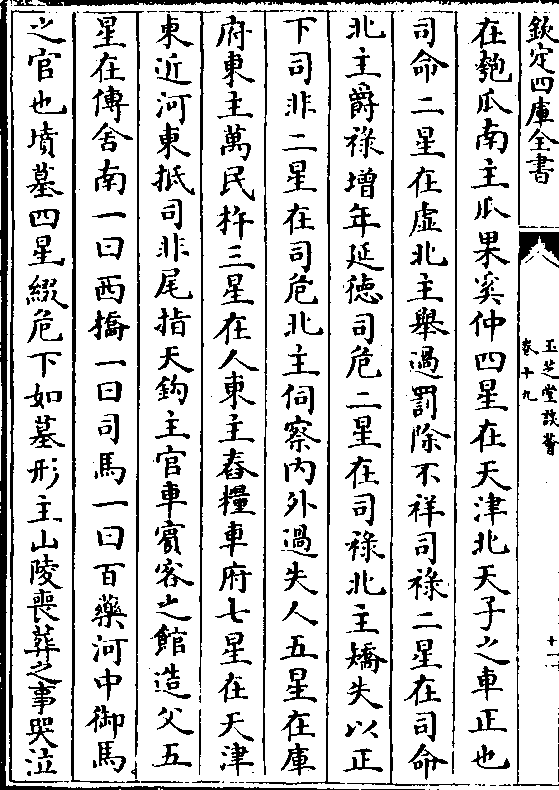 欽定四庫全書
玉芝堂談薈
卷十九
十二
在匏瓜南主瓜果奚仲四星在天津北天子之車正也
司命二星在虛北主舉過罰除不祥司祿二星在司命
北主爵祿增年延德司危二星在司祿北主矯失以正
下司非二星在司危北主伺察内外過失人五星在庫
府東主萬民杵三星在人東主舂糧車府七星在天津
東近河東抵司非尾指天鈎主官車賓客之館造父五
星在傳舍南一曰西橋一曰司馬一曰百藥河中御馬
之官也墳墓四星綴危下如墓形主山陵喪葬之事哭泣